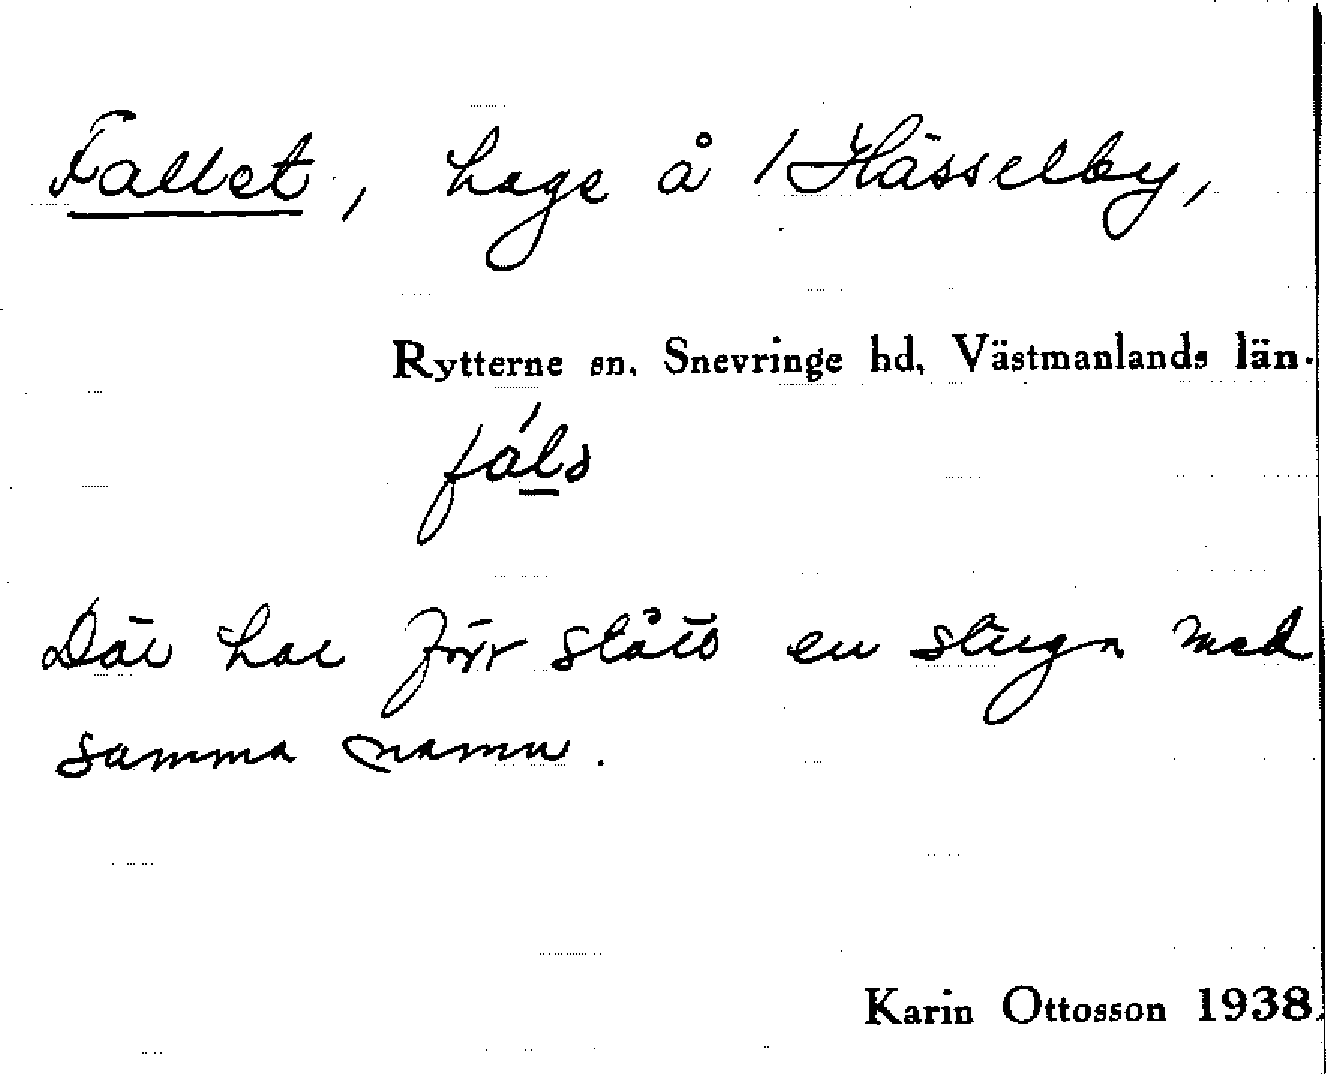 Fallet, hage å 1 Hässelby,
Rytterne sn. Snevringe hd, Västmanlands län.
fáls
Där har förr stått en stuga med
samma namn.
Karin Ottosson 1938.